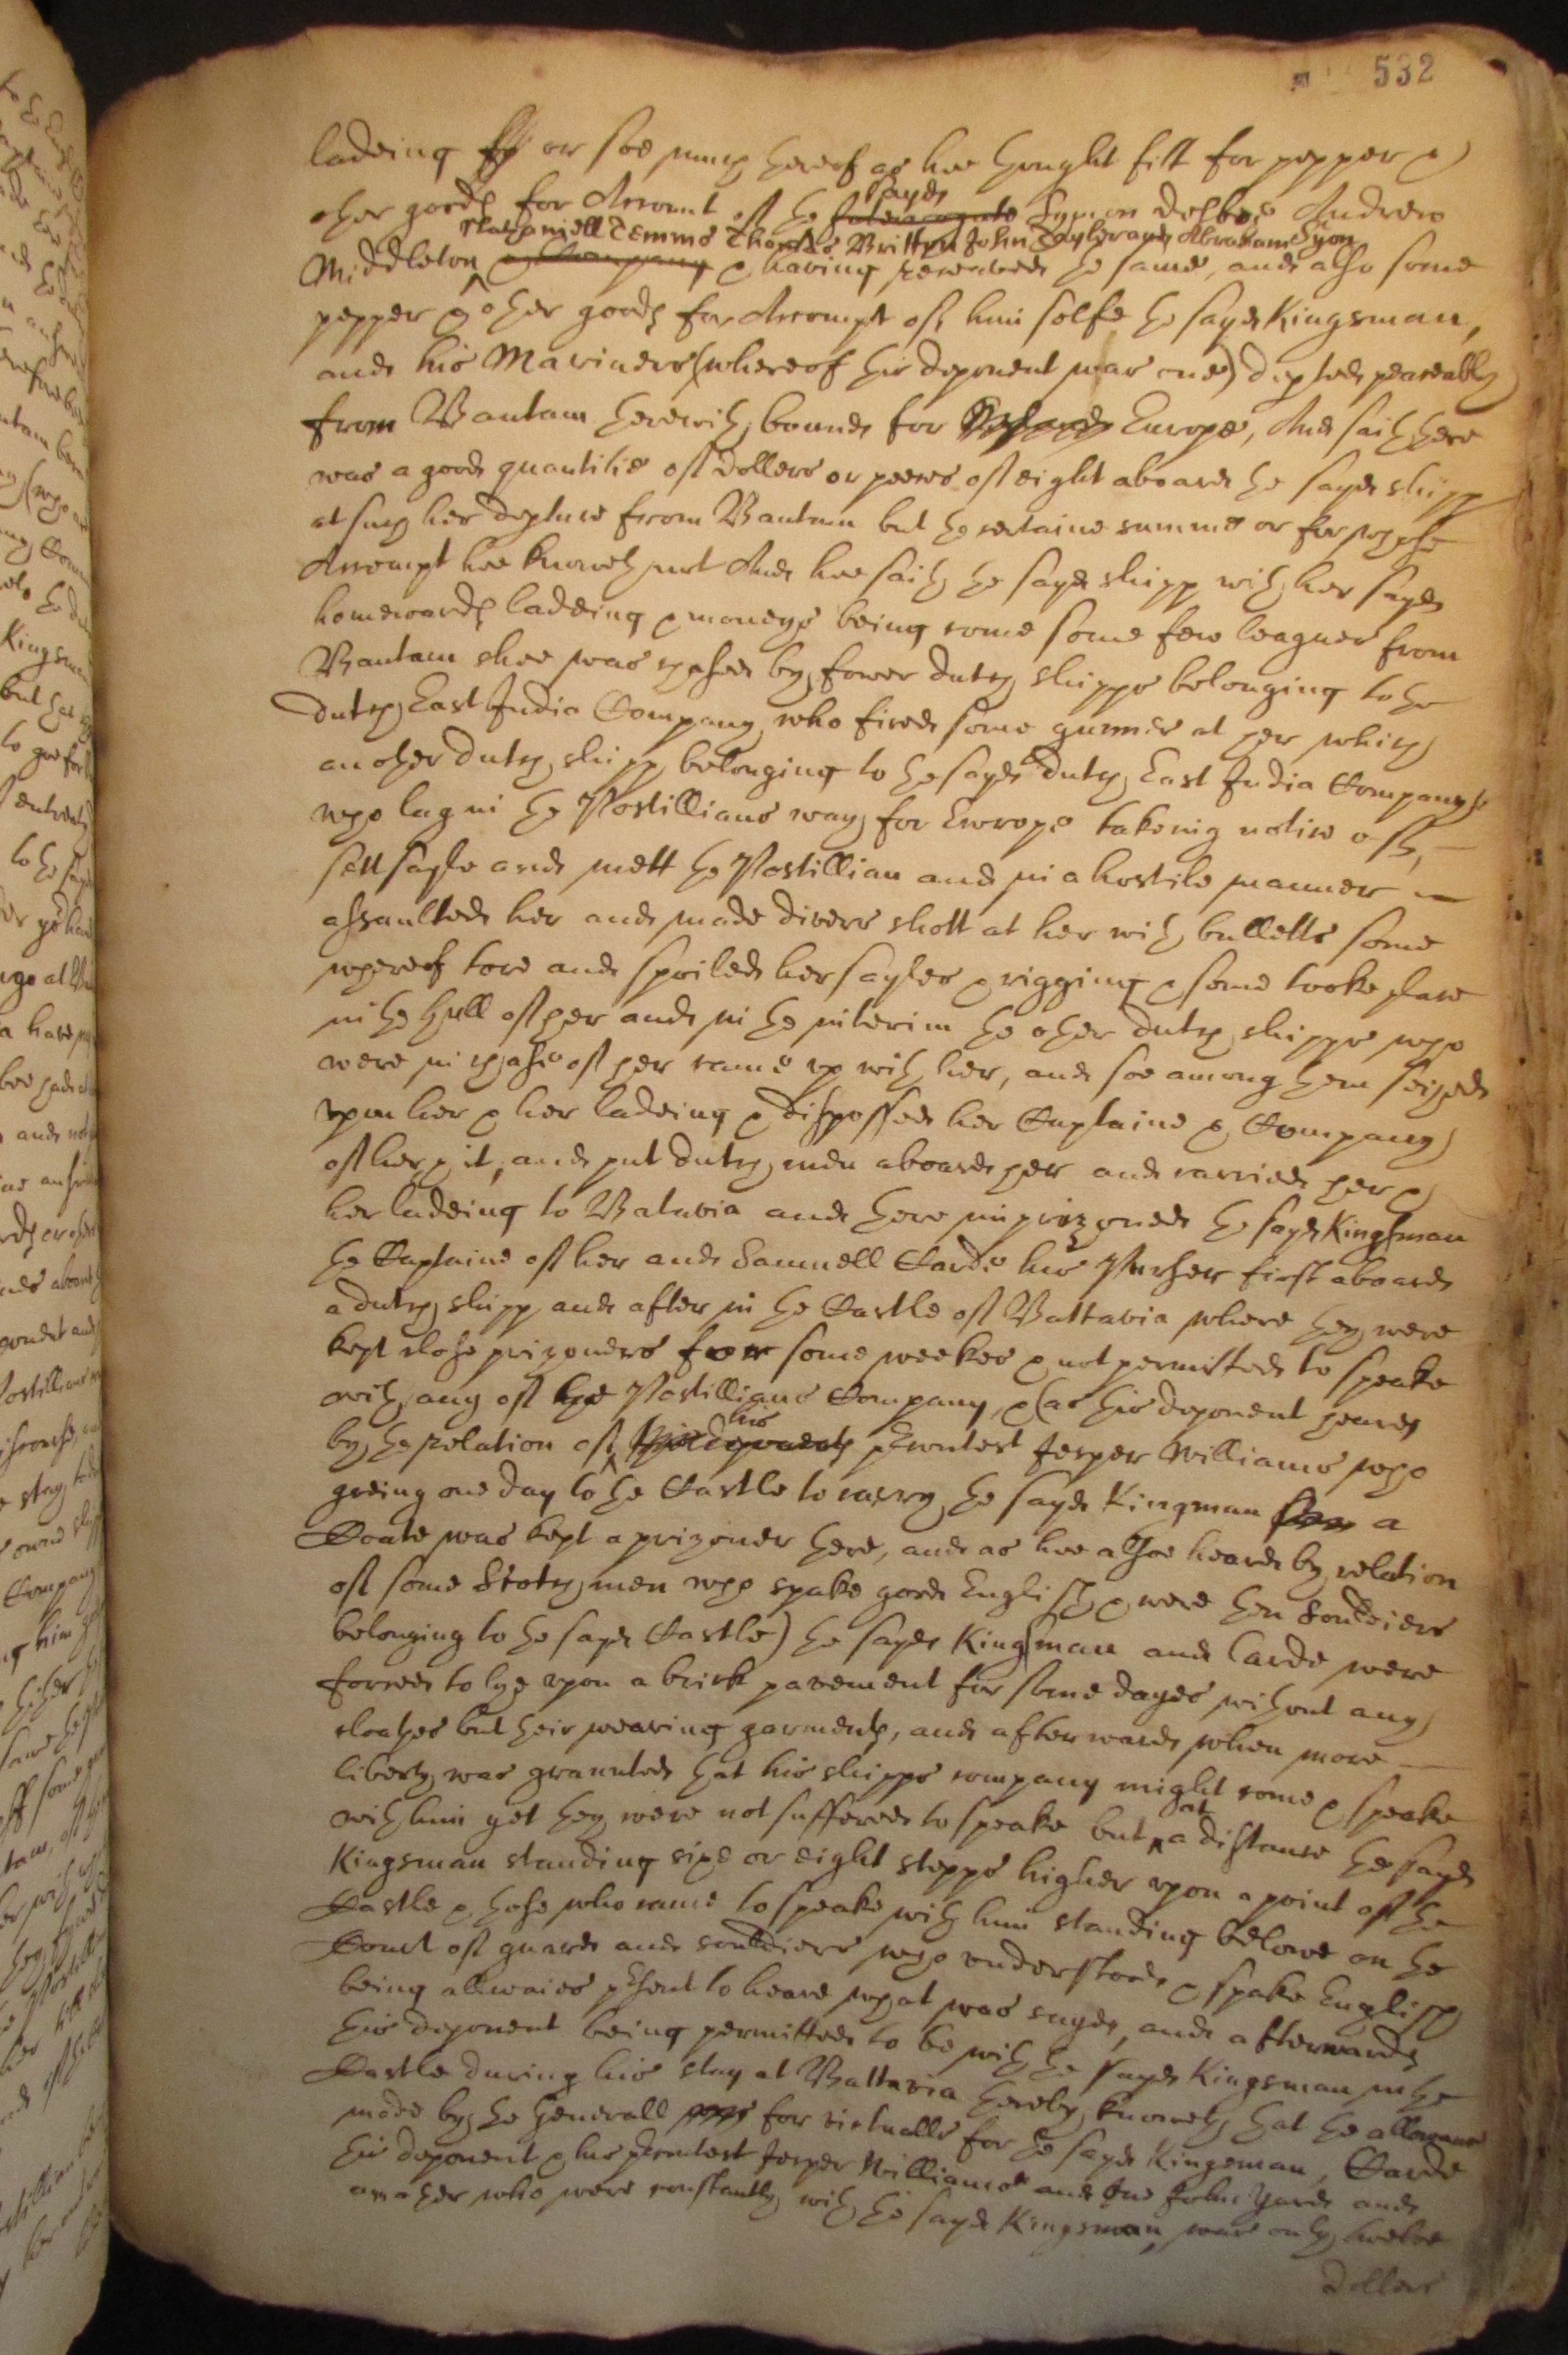 532
ladeing or soe much thereof as hee thought fitt for pepper &
other goods for Account of the sayd Symon Delboe Andrew
Nathaniell Temms Thomas Britten John Taylor and Abraham Syon
Middleton & Company & having received the same, and also some
pepper & other goods for Accompt of him selfe the sayd Kingsman,
and his Mariners (whereof this deponent was one) depted peaceably
from Bantam therewith, bound for Europe, And saith there
was a good quantitie of Dollers or peeces of eight aboard the sayd shipp
at such her depture from Bantam but the certaine summe or for whose
Accompt hee knoweth not And hee saith the sayd shipp with her sayd
homewards ladeing & moneys being come some few leagues from
Bantam shee was chased by fower dutch shipps belonging to the
dutch East India Company who fired some gunnes at her which
another dutch shipp belonging to the sayd dutch East India Company
who lay in the Postillians way for Europe takeing notice of,
sett sayle and mett the Postillian and in a hostile manner
assaulted her and made divers shott at her with bulletts some
whereof tore and spoiled her sayles & rigging & some tooke place
in the hull of her and in the interim the other dutch shipps who
were in chase of her came up with her, and soe among them seized
upon her & her ladeing & disposssed her Captaine & Company
of her & it, and put dutch men aboard her and carried her &
her ladeing to Batavia and there imprizoned the sayd Kingsman
the Captaine of her and Samuell Carde his Purser first aboard
a dutch shipp and after in the Castle of Battavia where they were
kept close prizoners for some weekes & not permitted to speake
with any of the Postillians Company, & (as this deponent heard
by the relation of his prentest Jesper Williams who
goeing one day to the Castle to carry the sayd Kingman a
Coate was kept a prizoner there, and as hee allsoe heard by relation
of some Scotch men who spake good English & were then Souldiers
belonging to the sayd Castle) the sayd Kingsman and Carde were
forced to lye upon a brick pavement for some dayes without any
cloathes but their wearing garments, and afterwards when more
liberty was graunted that his shipps company might come & speake
with him yet they were not suffered to speake but at a distance the sayd
Kingsman standing sixe or eight stepps higher upon a point of the
Castle & those who came to speake with him standing belowe on the
Court of guard and souldiers who understood & spake English
being allwaies present to heare what was sayd, and afterwards
this deponent being permitted to be with the sayd Kingsman in the
Castle during his stay at Battavia thereby knoweth that the allowance
made by the Generall for victualls for the sayd Kingsman, Carde
this deponent & his prentest Jesper Williams and one John Yard and
another who were constantly with the sayd Kingsman, was only twelve
dollers